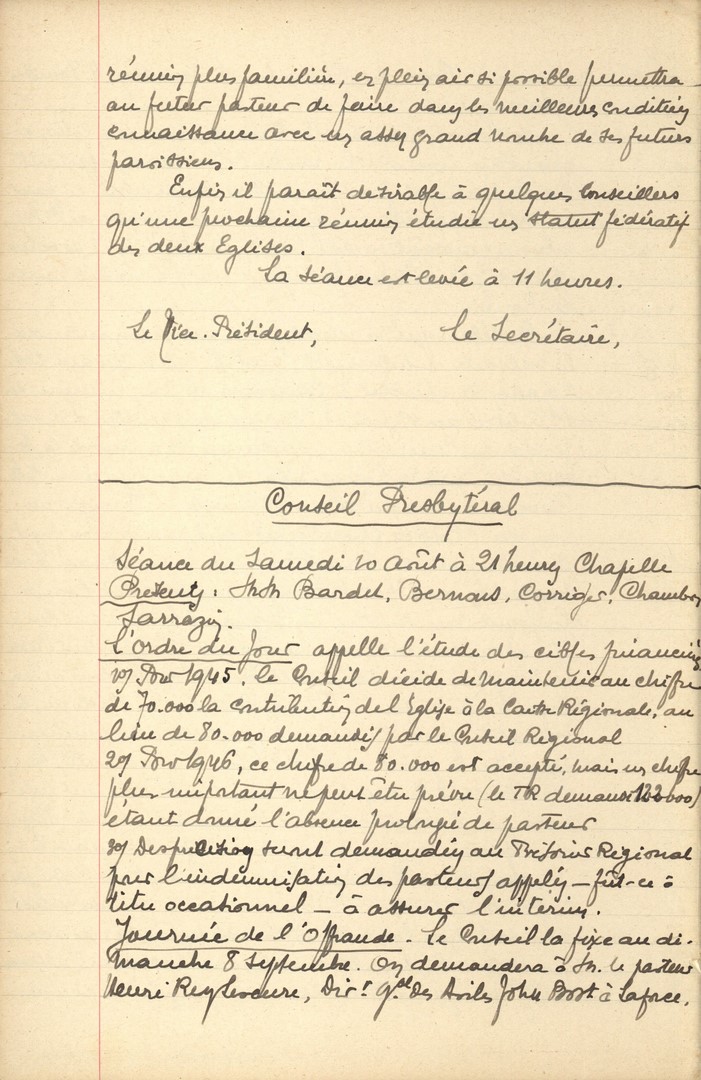 réunion plus familière, en plein air si possible permettra
au futur pasteur de faire dans les meilleures conditions
connaissance avec un assez grand nombre de ses futurs
paroissiens.
Enfin il paraît désirable à quelques Conseillers
qu'une prochaine réunion étudie un statut fédératif
des deux Eglises.
La séance est levée à 11 heures.
Le Vice-Président, Le Secrétaire,
Conseil Presbytéral
Séance du Samedi 10 Août à 21 heures Chapelle
Présents : MM Bardet, Bernous, Corriger, Chambon
Sarrazin.
L'ordre du Jour appelle l'étude des cibles financières
1°) Pour 1945. le Conseil décide de maintenir au chiffre
de 70.000 la contribution de l'Eglise à la Caisse Régionale, au
lieu de 80.000 demandés par le Conseil Régional
2°) Pour 1946, ce chiffre de 80.000 est accepté, mais un chiffre
plus important ne peut être prévu (le TR demande 122000)
étant donné l'absence prolongée de pasteur
3°) Des précisions seront demandées au Trésorier Régional
pour l'indemnisation des pasteurs appelés – fût-ce à
titre occasionnel – à assurer l'intérim.
Journée de l'Offrande. Le Conseil la fixe au di-
manche 8 Septembre. On demandera à M. le pasteur
Henri Rey Lescure, Dir.r g.al des Asiles John Bost à Laforce.